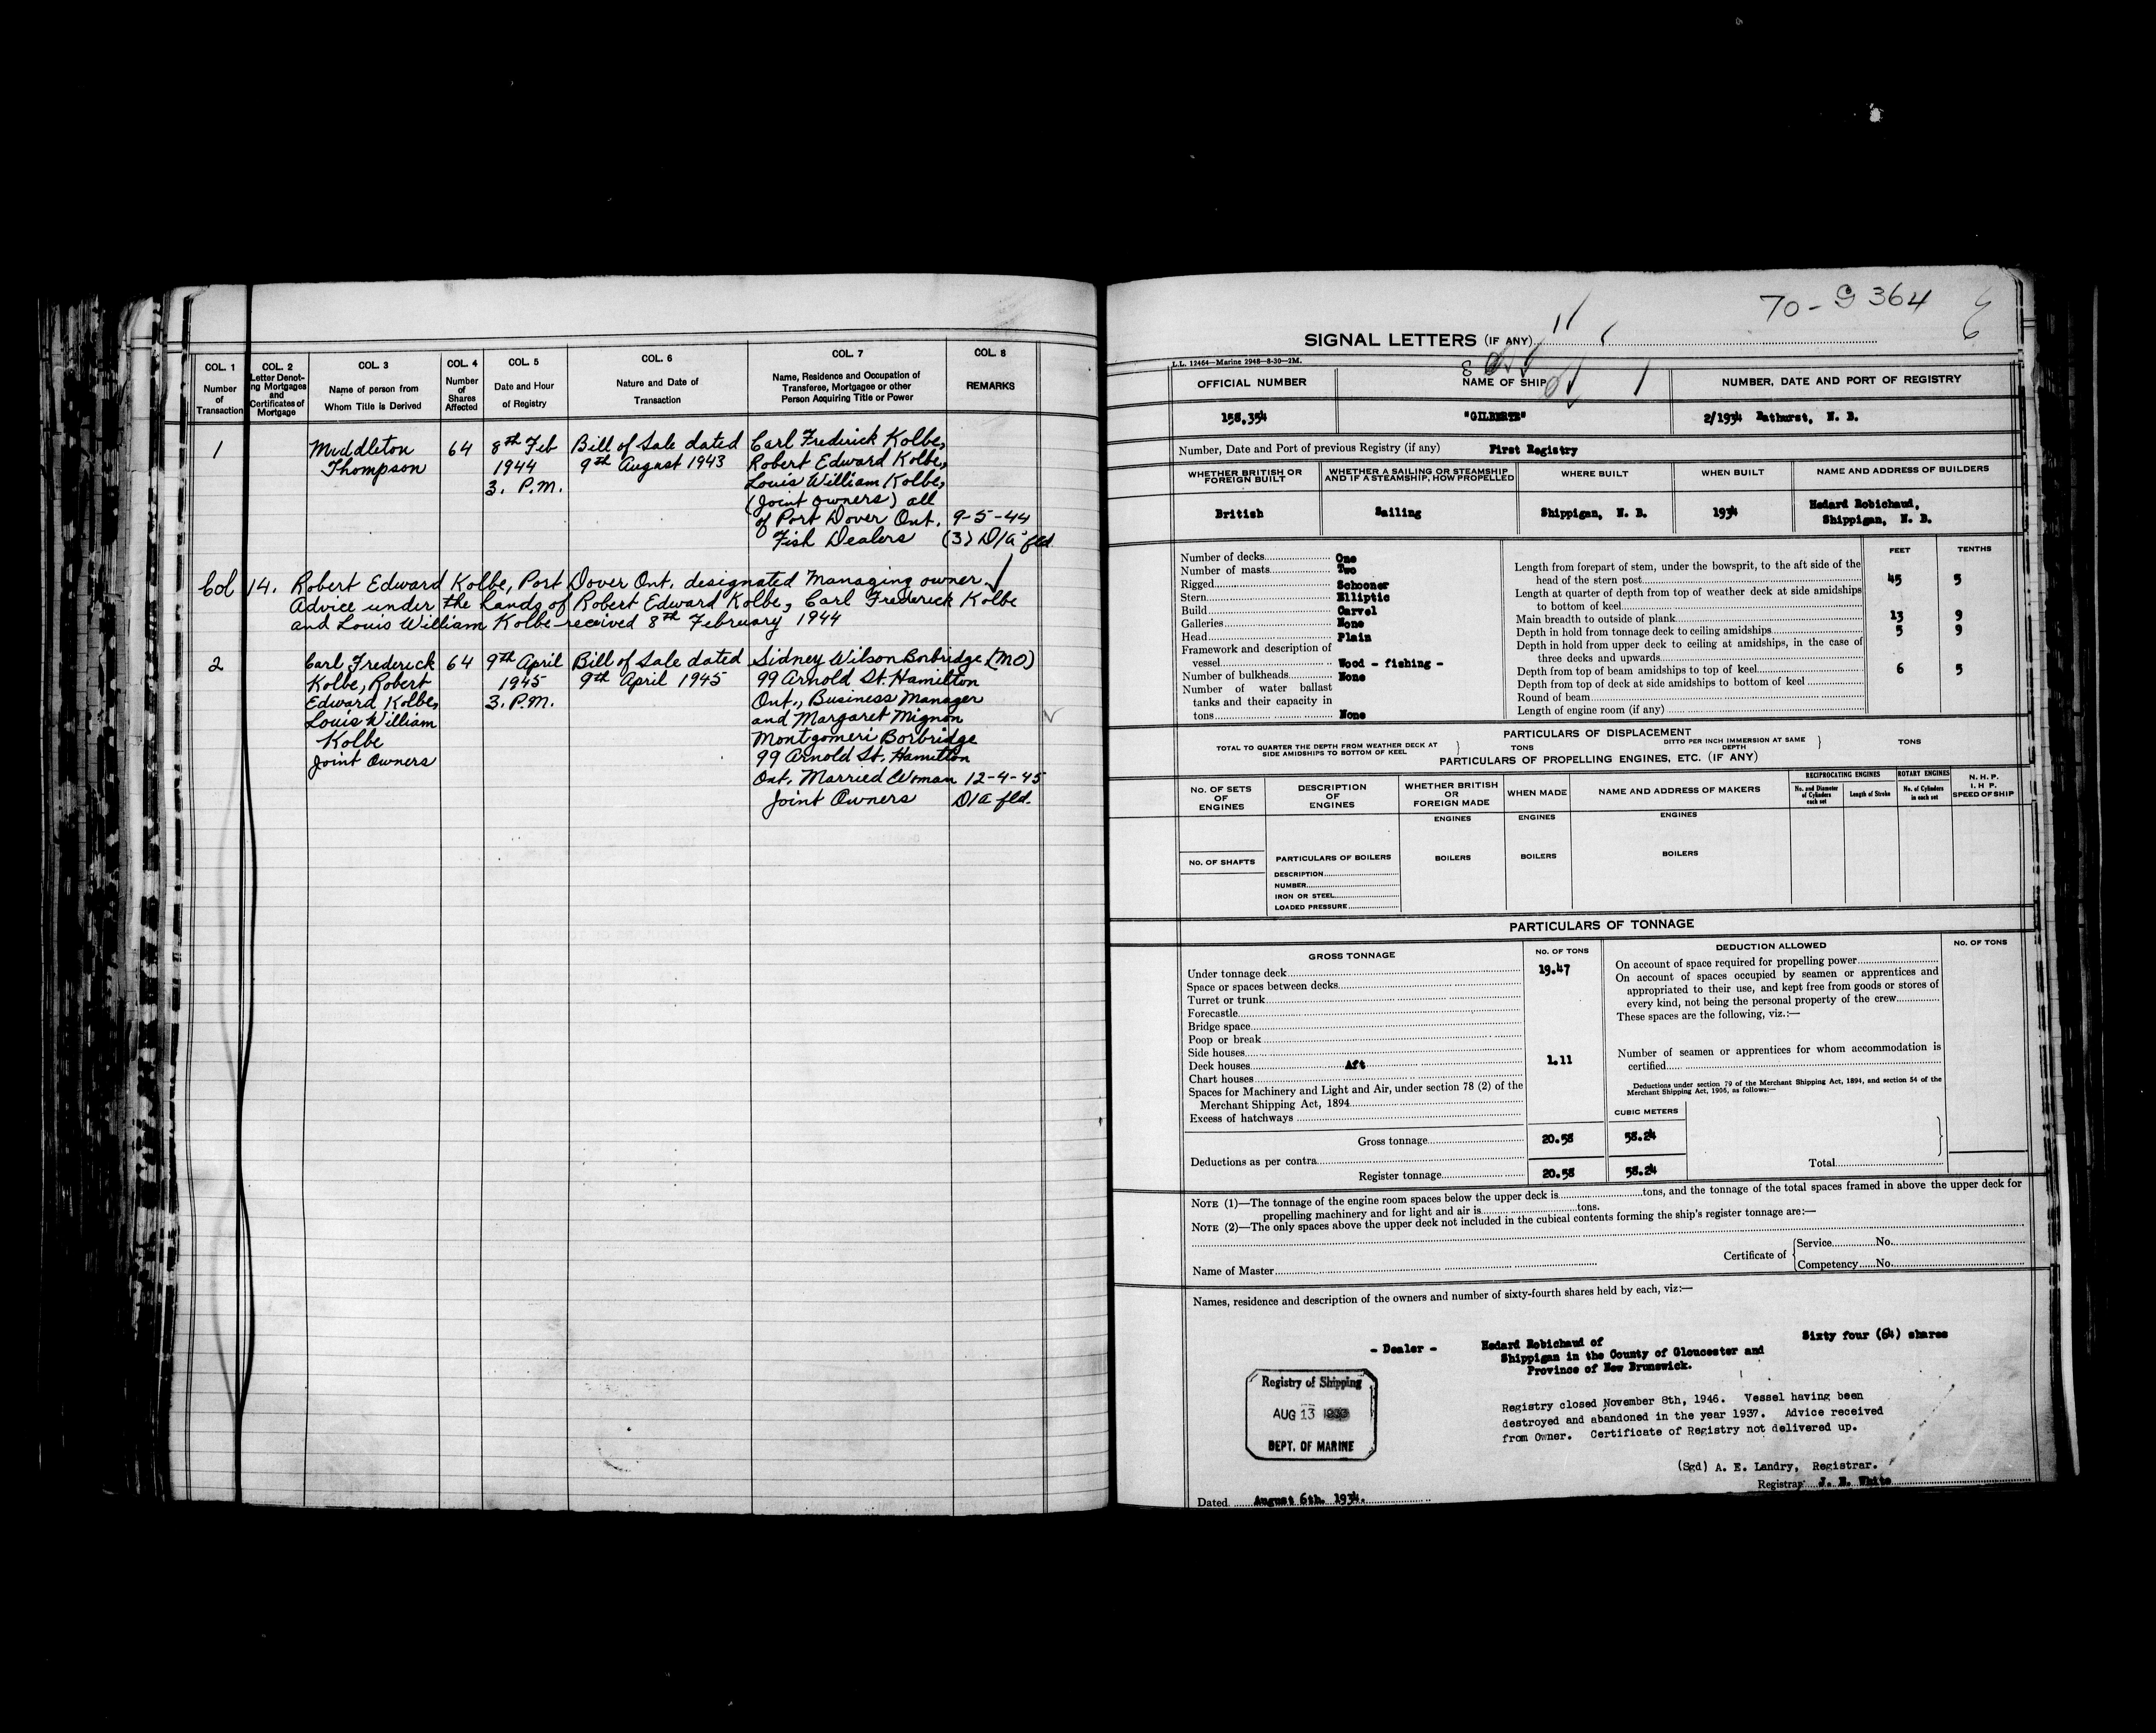 COL. 1
Number
of
Transaction
COL. 2
Letter Denot-
ing Mortgages
and
Certificates of
Mortgage
COL. 3
Name of person from
Whom Title is Derived
COL. 4
Number
of
Shares
Affected
COL. 5
Date and Hour
of Registry
COL. 6
Nature and Date of
Transaction
COL. 7
Name, Residence and Occupation of
Transferee, Mortgagee or other
Person Acquiring Title or Power
COL. 8
REMARKS
1
Middleton
Thompson
64
8th Feb
1944
3. P.M.
Bill of Sale dated
9th August 1943
Carl Frederick Kolbe,
Robert Edward Kolbe,
Louis William Kolbe,
(Joint owners) all
of Port Dover Ont.
Fish Dealers
9-5-44
(3) D/a fld.
14. Robert Edward Kolbe, Port Dover Ont. designated Managing owner.
Advice under the hands of Robert Edward Kolbe, Carl Frederick Kolbe
and Louis William Kolbe received 8th February 1944
2
Carl Frederick
Kolbe, Robert
Edward Kolbe,
Louis William
Kolbe
Joint Owners
64
9th April
1945
3. P.M.
Bill of Sale dated
9th April 1945
Sidney Wilson Borbridge (MO)
99 Arnold St. Hamilton
Ont., Business Manager
and Margaret Mignon
Montgomeri Borbridge
99 Arnold St. Hamilton
Ont. Married Woman
Joint Owners
12-4-45
D/a fld.
70-G 364
SIGNAL LETTERS (IF ANY)
L.L. 12464—Marine 2948—8-30—2M.
8
OFFICIAL NUMBER
NAME OF SHIP
NUMBER, DATE AND PORT OF REGISTRY
158,354
"GILBERTE"
2/1934 Bathurst, N. B.
Number, Date and Port of previous Registry (if any) First Registry
WHETHER BRITISH OR
FOREIGN BUILT
WHETHER A SAILING OR STEAMSHIP
AND IF A STEAMSHIP, HOW PROPELLED
WHERE BUILT
WHEN BUILT
NAME AND ADDRESS OF BUILDERS
British
Sailing
Shippigan, N. B.
1934
Hedard Robichaud,
Shippigan, N. B.
Number of decks One
Number of masts Two
Rigged Schooner
Stern Elliptic
Build Carvel
Galleries None
Head Plain
Framework and description of
vessel Wood - fishing -
Number of bulkheads None
Number of water ballast
tanks and their capacity in
tons None
FEET
TENTHS
Length from forepart of stem, under the bowsprit, to the aft side of the
head of the stern post 45 5
Length at quarter of depth from top of weather deck at side amidships
to bottom of keel
Main breadth to outside of plank 13 9
Depth in hold from tonnage deck to ceiling amidships 5 9
Depth in hold from upper deck to ceiling at amidships, in the case of
three decks and upwards
Depth from top of beam amidships to top of keel 6 5
Depth from top of deck at side amidships to bottom of keel
Round of beam
Length of engine room (if any)
PARTICULARS OF DISPLACEMENT
TOTAL TO QUARTER THE DEPTH FROM WEATHER DECK AT
SIDE AMIDSHIPS TO BOTTOM OF KEEL
TONS
DITTO PER INCH IMMERSION AT SAME
DEPTH
TONS
PARTICULARS OF PROPELLING ENGINES, ETC. (IF ANY)
NO. OF SETS
OF
ENGINES
DESCRIPTION
OF
ENGINES
WHETHER BRITISH
OR
FOREIGN MADE
WHEN MADE
NAME AND ADDRESS OF MAKERS
RECIPROCATING ENGINES
No. and Diameter
of Cylinders
each set
Length of Stroke
ROTARY ENGINES
No. of Cylinders
in each set
N. H. P.
I. H. P.
SPEED OF SHIP
ENGINES
ENGINES
ENGINES
NO. OF SHAFTS
PARTICULARS OF BOILERS
BOILERS
BOILERS
BOILERS
DESCRIPTION
NUMBER
IRON OR STEEL
LOADED PRESSURE
PARTICULARS OF TONNAGE
GROSS TONNAGE
NO. OF TONS
DEDUCTION ALLOWED
NO. OF TONS
Under tonnage deck 19.47
Space or spaces between decks
Turret or trunk
Forecastle
Bridge space
Poop or break
Side houses
Deck houses Aft 1.11
Chart houses
Spaces for Machinery and Light and Air, under section 78 (2) of the
Merchant Shipping Act, 1894
Excess of hatchways
On account of space required for propelling power
On account of spaces occupied by seamen or apprentices and
appropriated to their use, and kept free from goods or stores of
every kind, not being the personal property of the crew
These spaces are the following, viz.:—
Number of seamen or apprentices for whom accommodation is
certified
Deductions under section 79 of the Merchant Shipping Act, 1894, and section 54 of the
Merchant Shipping Act, 1906, as follows:—
CUBIC METERS
Gross tonnage 20.58 58.24
Deductions as per contra
Register tonnage 20.58 58.24
Total
NOTE (1)—The tonnage of the engine room spaces below the upper deck is tons, and the tonnage of the total spaces framed in above the upper deck for
propelling machinery and for light and air is tons.
NOTE (2)—The only spaces above the upper deck not included in the cubical contents forming the ship's register tonnage are:—
Name of Master
Certificate of
Service No.
Competency No.
Names, residence and description of the owners and number of sixty-fourth shares held by each, viz:—
- Dealer -
Hedard Robichaud of
Shippigan in the County of Gloucester and
Province of New Brunswick.
Sixty four (64) shares
Registry of Shipping
AUG 13
DEPT. OF MARINE
Registry closed November 8th, 1946. Vessel having been
destroyed and abandoned in the year 1937. Advice received
from Owner. Certificate of Registry not delivered up.
(Sgd) A. E. Landry, Registrar.
Dated August 6th. 1934.
Registrar J. E. White